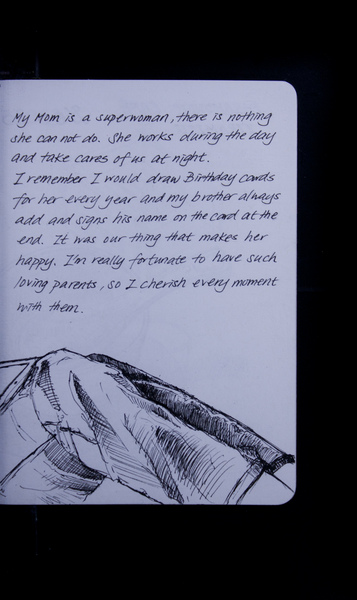 My Mom is a superwoman, there is nothing
she can not do. She works during the day
and take cares of us at night.
I remember I would draw Birthday cards
for her every year and my brother always
add and signs his name on the card at the
end. It was our thing that makes her
happy. I'm really fortunate to have such
loving parents, so I cherish every moment
with them.